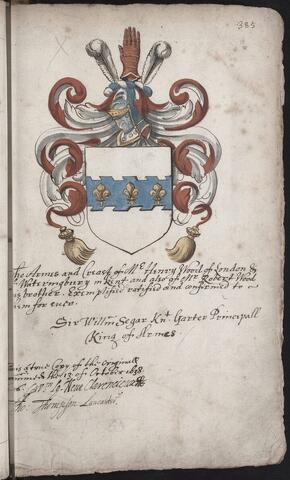 385
The Armes and Creast of Mr Henry Wood of London &
Wateringbury in Kent and also of Mr Robert Wood
his brother. Exemplified ratified and confirmed to
him for ever.
Sir Willm Segar Knt Garter Principall
King of Armes.
This is a true Copy of the originall
the 13 of October 1638
Le Neve Clarenceux
Tho: Thompson Lancaster